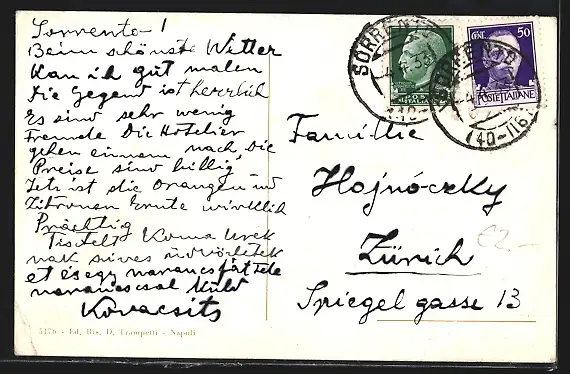 Sorrento !
Beim schönste Wetter
kan ich gut malen
Die Gegend ist herrlich
Es sind sehr wenig
Fremde Die Hotelier
gehen einem nach, Die
Preise sind billig
Jetz ist die Orangen und
Zitronen Ernte wirklich
Prächtig
Tistelt Koma Urék
nak szives üdvözletek
et és egy narancsfát tele
naranccsal küld
Kovacsits
5176 - Ed. Ris. D. Trampetti - Napoli
SORRENTO
CENT. 50
POSTE ITALIANE
SORRENTO
Familie
Hajnóczky
Zürich
Spiegelgasse 13
€2.-